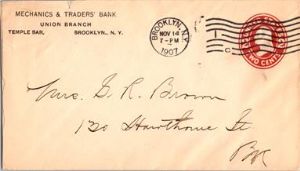 MECHANICS & TRADERS' BANK
UNION BRANCH
TEMPLE BAR, BROOKLYN, N. Y.
BROOKLYN, N.Y.
NOV 14
7-PM
1907
1
C
TWO CENTS
Mrs. G. R. Brown
120 Hawthorne St